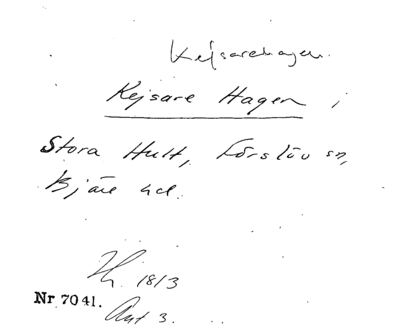 Kejsarehagen.
Kejsare Hagen i
Stora Hult, Förslöv sn,
Bjäre hd.
18/3
Nr 7041.
Ant 3.